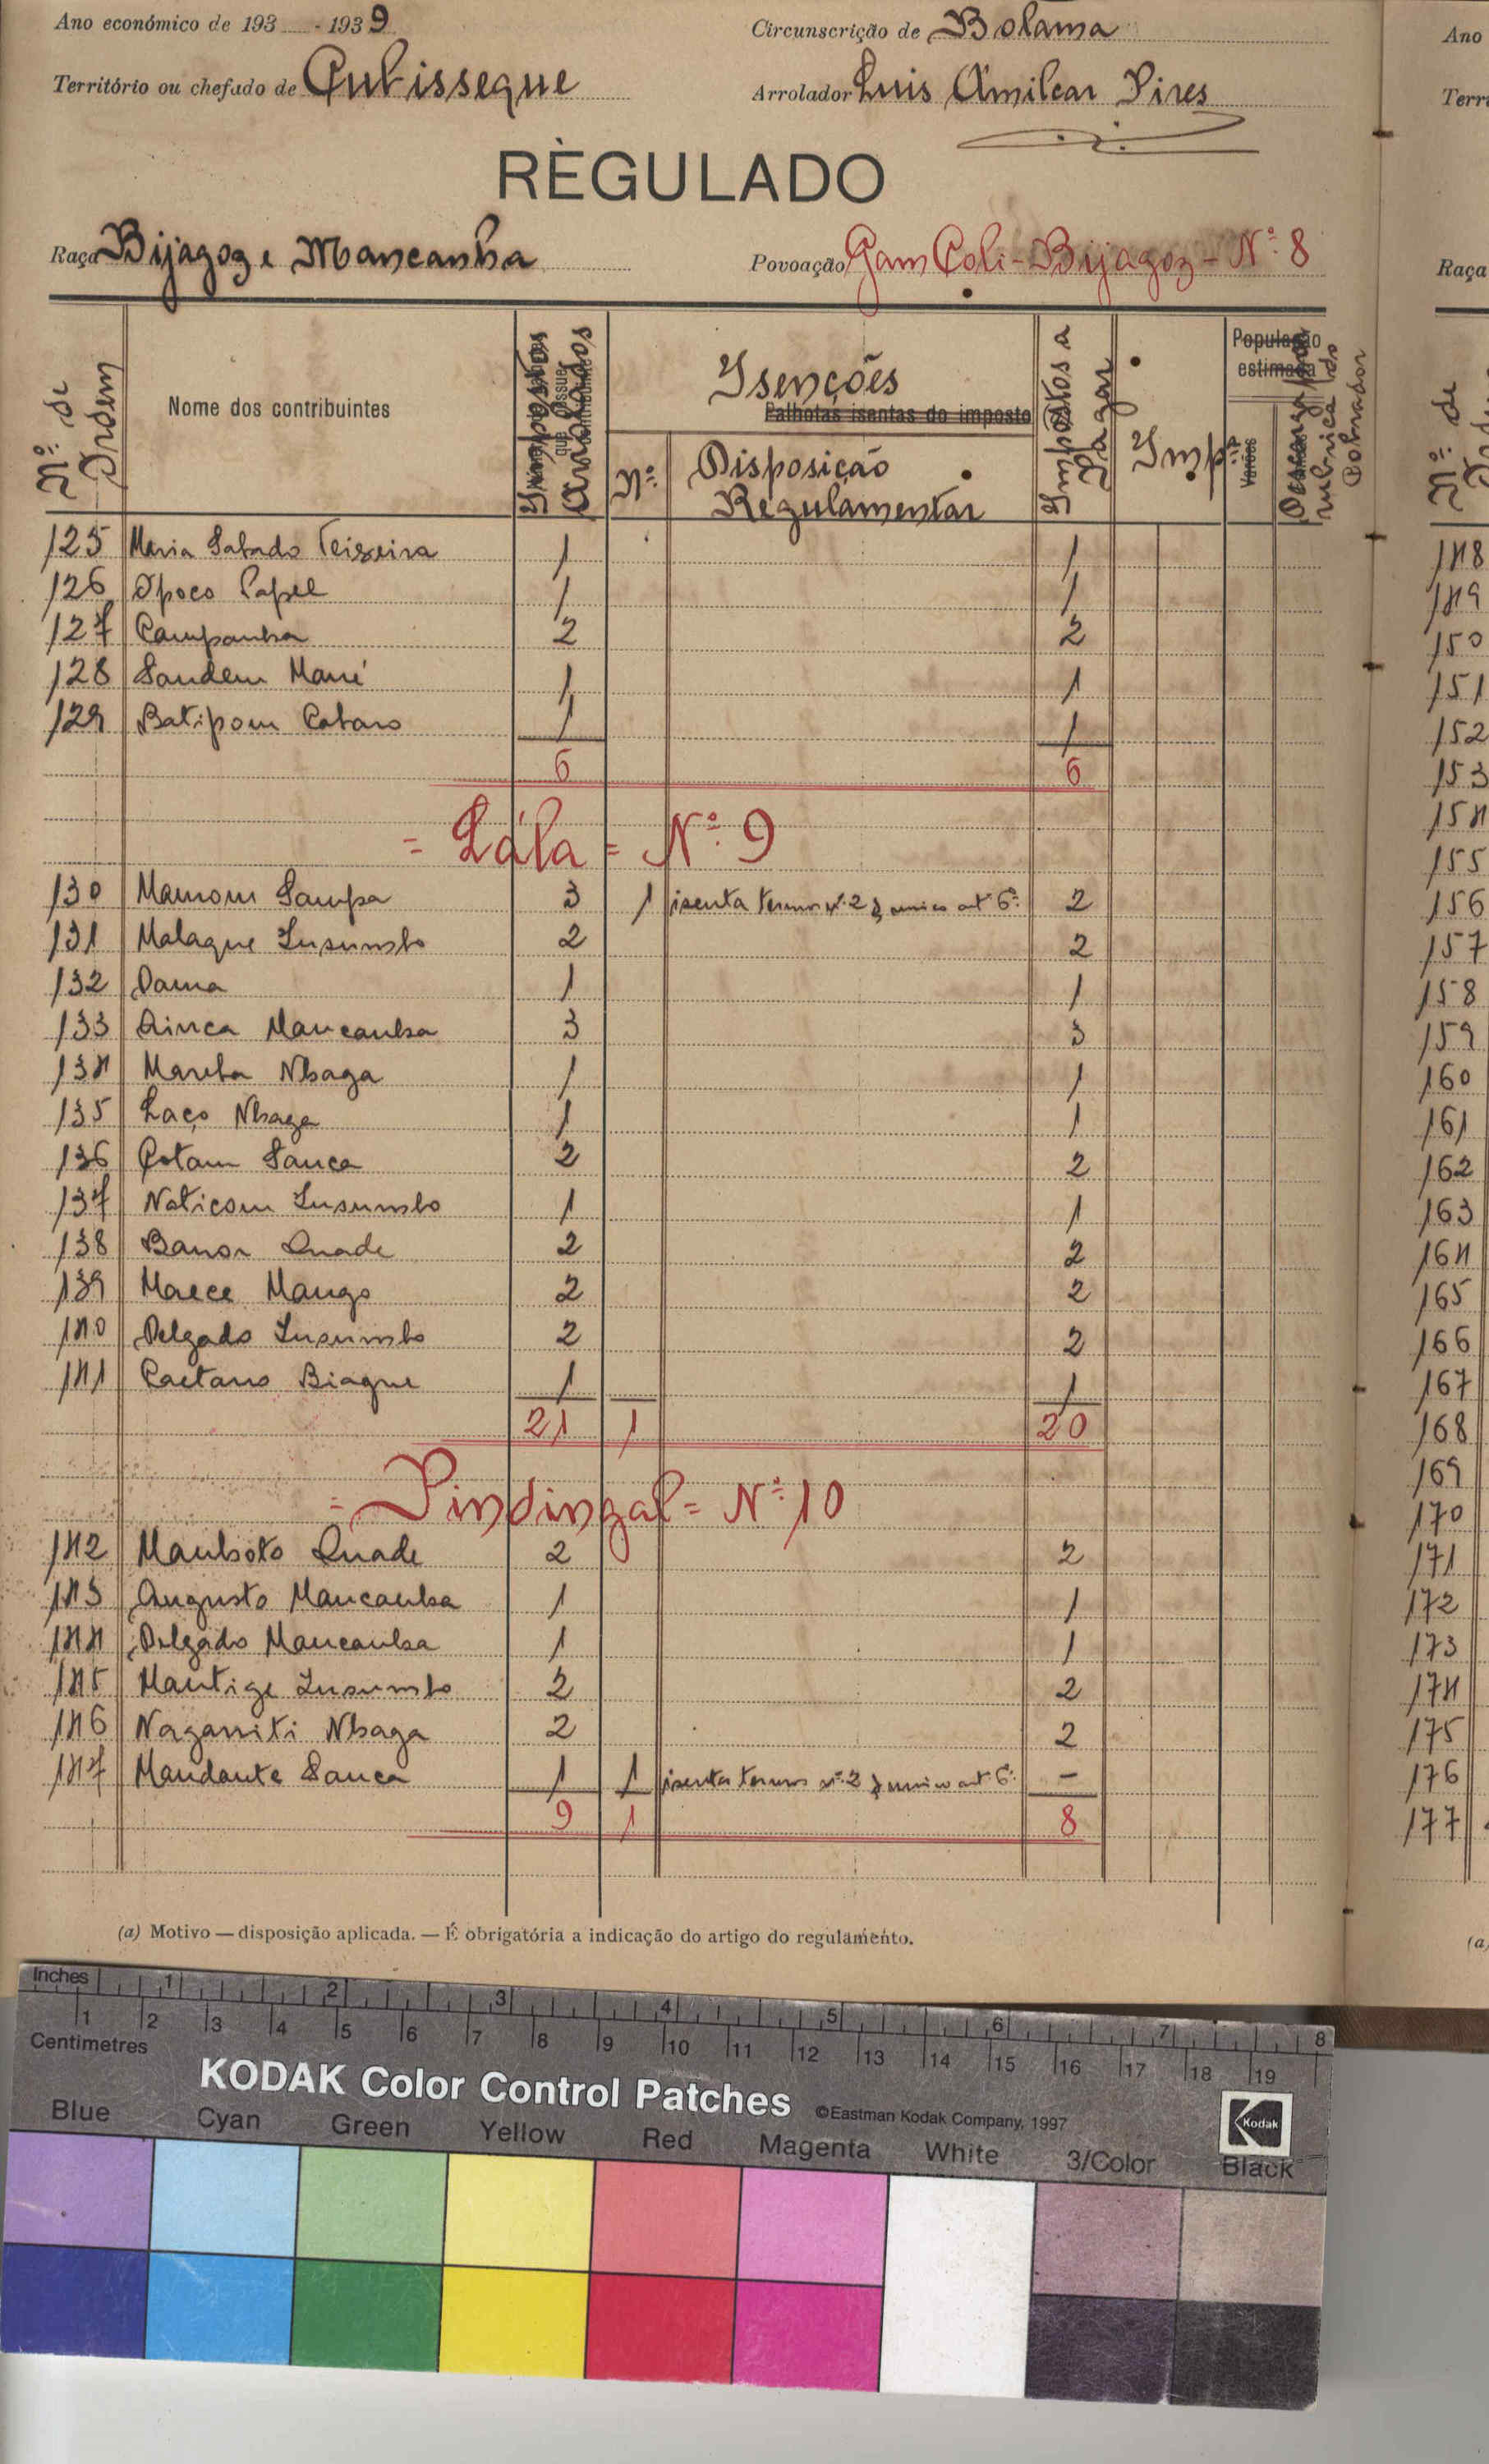 Ano económico de 193 - 1939
Circunscrição de Bolama
Ano
Território ou chefado de Cubisseque
Arrolador Luis Amilcar Pires
Terri
RÈGULADO
Raça Bijagoz e Mancanha
Povoação Gam Coli - Bijagoz - Nº. 8
Raça
Nº. de Ordem
Nome dos contribuintes
Impostos Arrolados
Isenções
Palhotas isentas do imposto
Nº.
Disposição Regulamentar
Impostos a Pagar
Imp.
População estimada
Varões
rubrica do Cobrador
Nº. de
125 Maria Sabado Teixeira 1 1
126 Opoco Papel 1 1
127 Campanha 2 2
128 Sandem Mané 1 1
129 Batipom Cabaro 1 1
6 6
= Lála = Nº. 9
130 Mamom Sampa 3 1 isenta termos nº. 2 § unico art 6º. 2
131 Malaque Insumbo 2 2
132 Dama 1 1
133 Quinca Mancanha 3 3
134 Marcha Nbaga 1 1
135 Laço Nbaga 1 1
136 Cotam Sanca 2 2
137 Naticom Insumbo 1 1
138 Banor Quade 2 2
139 Maece Mango 2 2
140 Delgado Insumbo 2 2
141 Caetano Biague 1 1
21 1 20
= Pindingal = Nº. 10
142 Manboto Quade 2 2
143 Augusto Mancanha 1 1
144 Delgado Mancanha 1 1
145 Mantige Insumbo 2 2
146 Naganiti Nbaga 2 2
147 Mandante Sanca 1 1 isenta termos nº. 2 § unico art 6º. -
9 1 8
148
149
150
151
152
153
154
155
156
157
158
159
160
161
162
163
164
165
166
167
168
169
170
171
172
173
174
175
176
177
(a) Motivo — disposição aplicada. — É obrigatória a indicação do artigo do regulamento.
(a)
Inches 1 2 3 4 5 6 7 8
Centimetres 1 2 3 4 5 6 7 8 9 10 11 12 13 14 15 16 17 18 19
KODAK Color Control Patches ©Eastman Kodak Company, 1997
Kodak
Blue Cyan Green Yellow Red Magenta White 3/Color Black